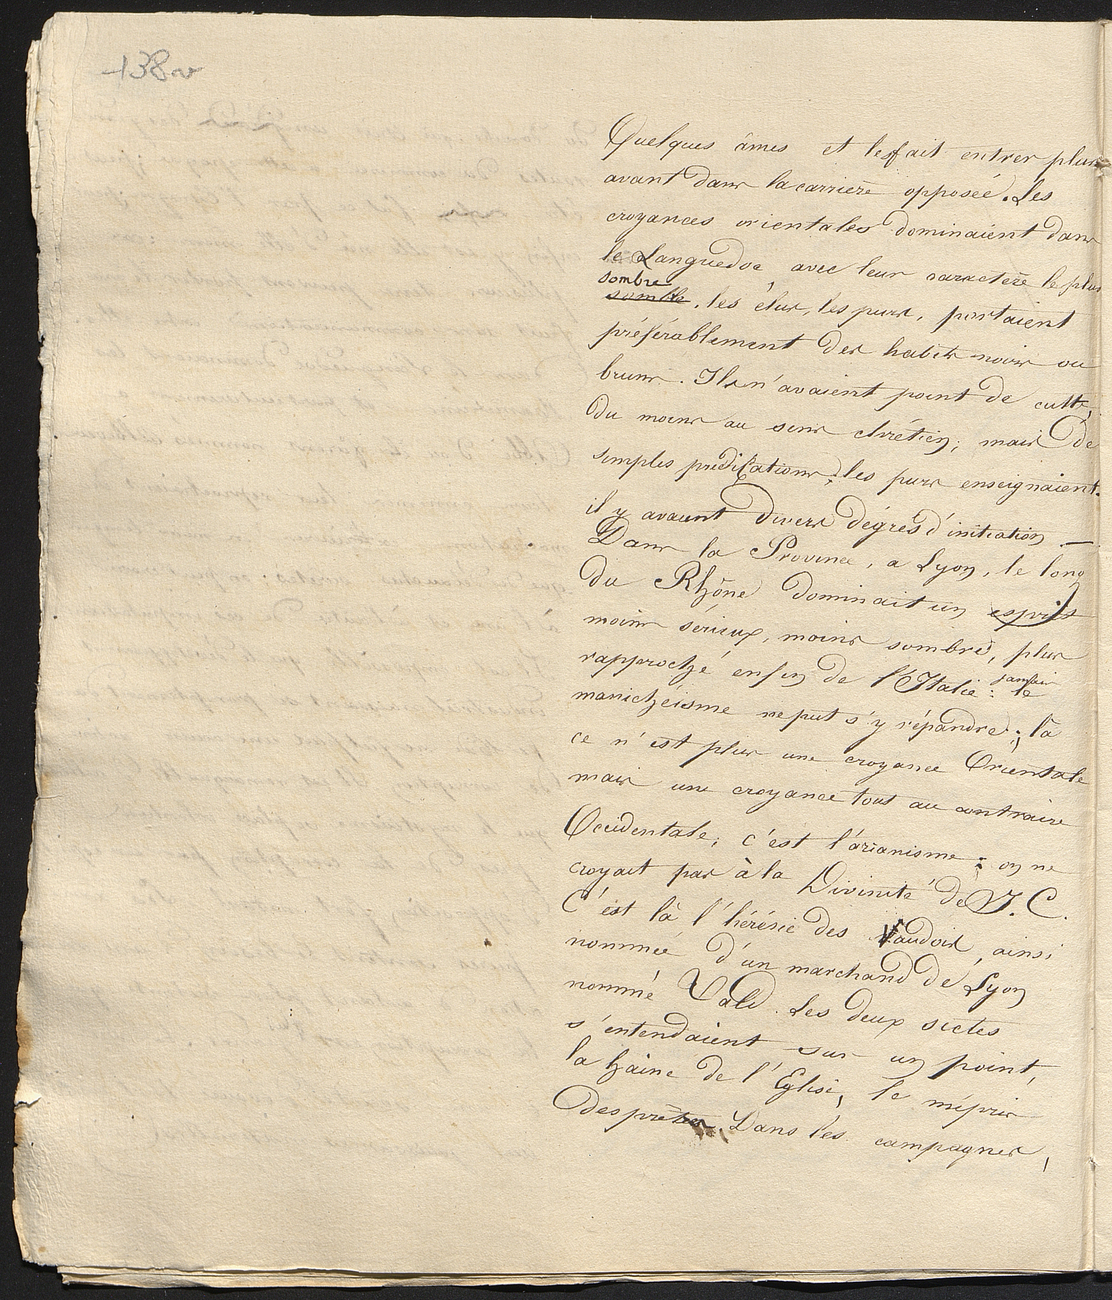 138v
Quelques âmes et le fait entrer plus
avant dans la carrière opposée. Les
croyances orientales dominaient dans
le Languedoc avec leur caractère le plus
sombre
sombre, les élus, les purs, portaient
préférablement des habits noirs ou
bruns. Ils n'avaient point de culte,
du moins au sens chrétien; mais de
simples prédications; les purs enseignaient.
il y avaient divers dégrés d'initiation —
Dans la Province, a Lyon, le long
du Rhône dominait un esprit
moins sérieux, moins sombre, plus
rapproché enfin de l'Italie : jamais le
manichéisme ne put s'y répandre; là
ce n'est plus une croyance Orientale
mais une croyance tout au contraire
Occidentale; c'est l'arianisme; on ne
croyait pas à la Divinité de J. C.
C'est là l'hérésie des Vaudois, ainsi
nommée d'un marchand de Lyon
nommé Vald. Les deux sectes
s'entendaient sur un point,
la haine de l'Eglise, le mépris
des prêtres. Dans les campagnes,